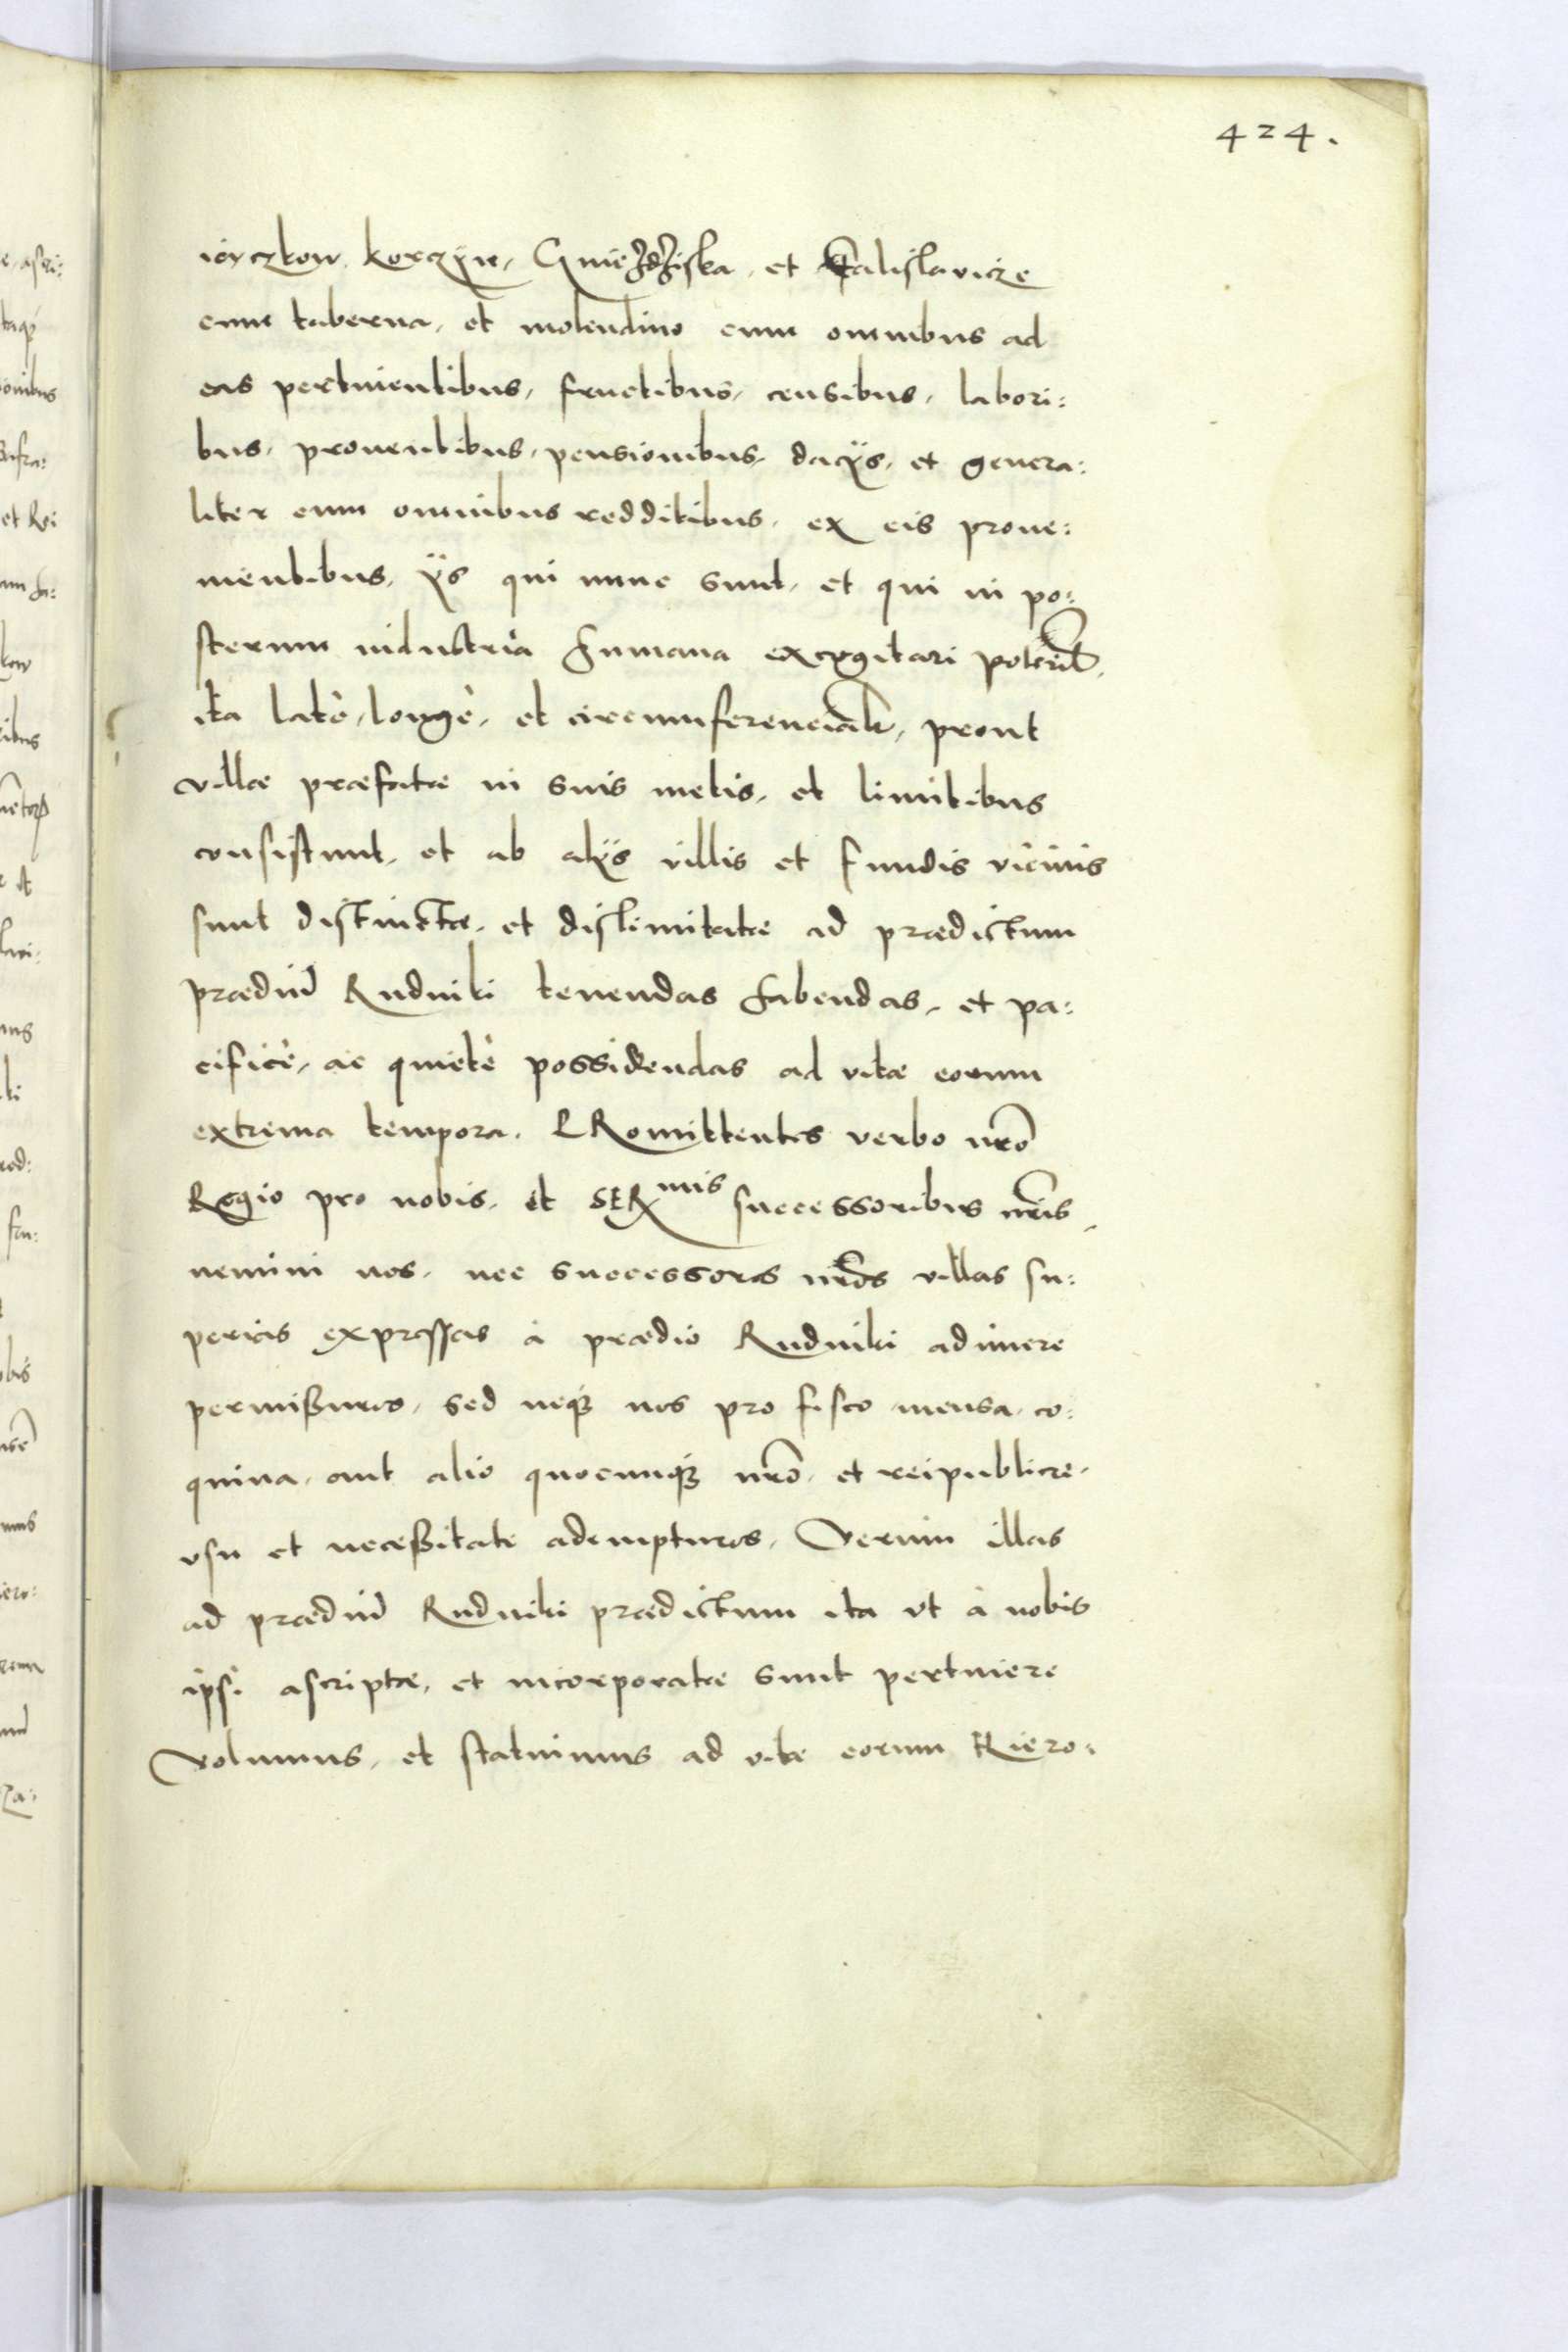 424.
ioyczkow, korczyn, Gnieżdżiska, et Stalislavicze
cum taberna, et molendino cum omnibus ad
eas pertinentibus, fructibus, censibus, labori:
bus, proventibus, pensionibus, dacÿs, et genera:
liter cum omnibus redditibus, ex eis prove:
nientibus, ÿs qui nunc sunt, et qui in po:
sterum industria humana excogitari poterunt,
ita latè, longè, et circumferencialr, prout
villæ præfatæ in suis metis, et limitibus
consistunt, et ab alÿs villis et fundis vicinis
sunt distinctæ, et dislimitatæ ad prædictum
prædiũ Rudniki tenendas habendas, et pa:
cificè, ac quietè possidendas ad vitæ eorum
extrema tempora. PRomittentes verbo nrõ
Regio pro nobis, et SERmis successoribus nrĩs,
nemini nos, nec successores nrõs villas su:
perius expressas à prædio Rudniki adimere
permißuros, sed neqꝫ nos pro fisco mensa, co:
quina, aut alio quocunqꝫ nrõ, et reipublicæ,
usu et necessitate adempturos. Verum illas
ad prædiũ Rudniki prædictum ita ut à nobis
ipsi ascriptæ, et incorporatæ sunt pertinere
volumus, et statuimus ad vitæ eorum Hiero: